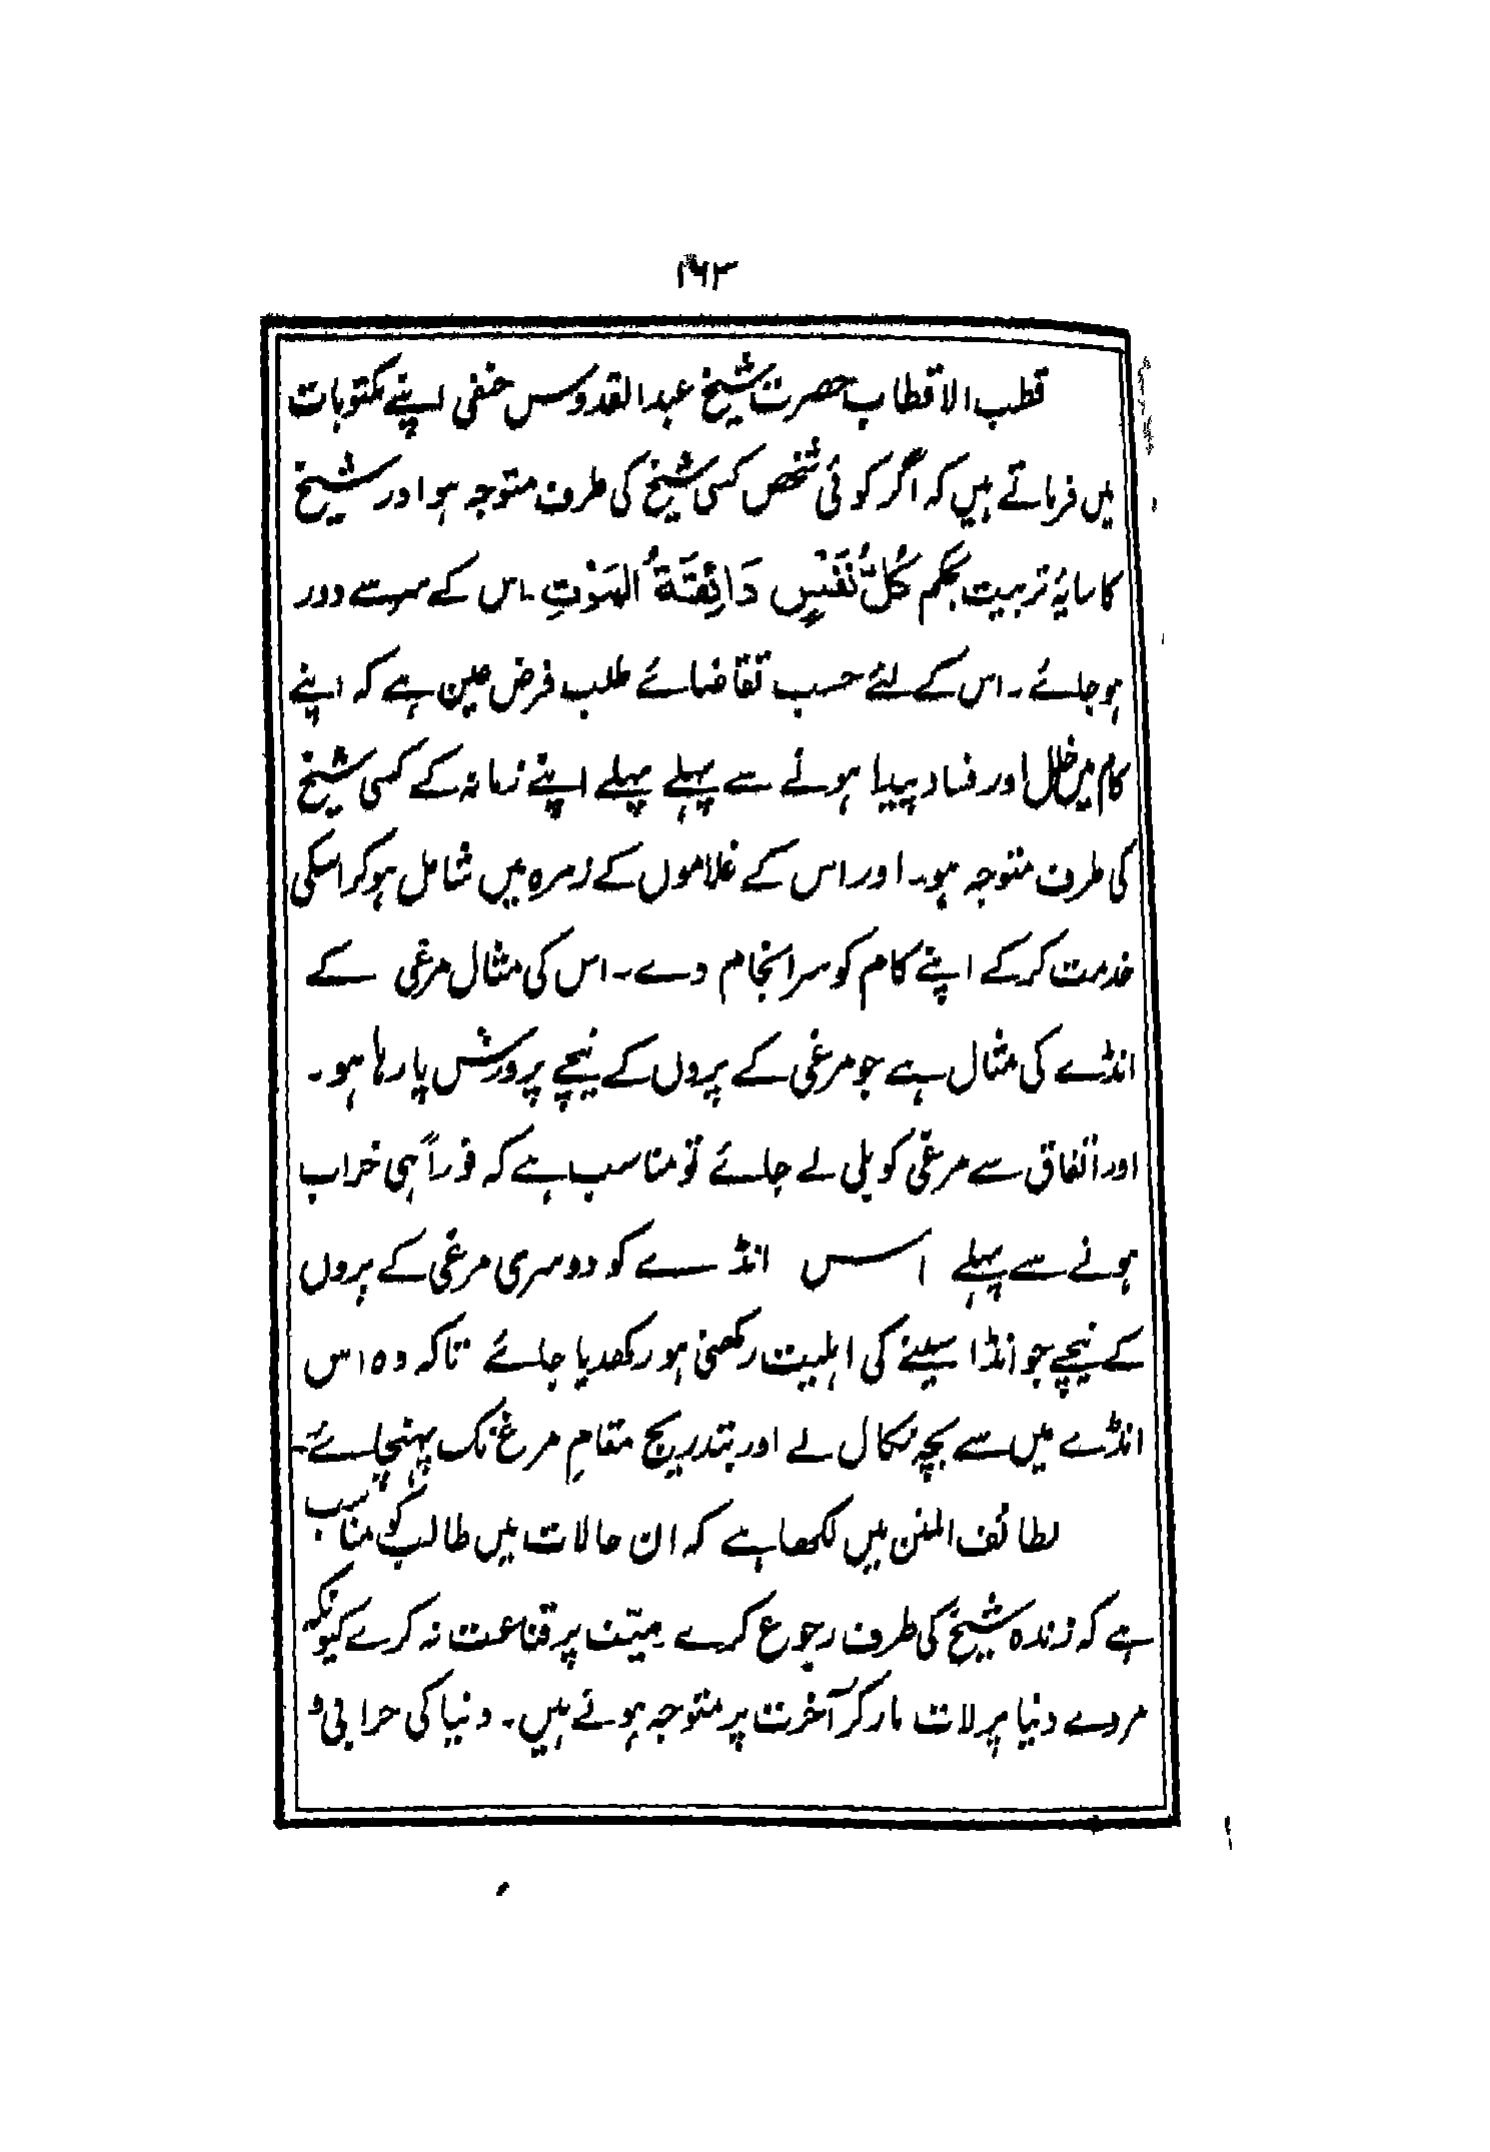 ۱۶۳
قطب الاقطاب حضرت شیخ عبدالقدوس حنفی اپنے مکتوبات
میں فرماتے ہیں کہ اگر کوئی شخص کسی شیخ کی طرف متوجہ ہو اور شیخ
کا سایۂ تربیت بحکم کُلُّ نَفْسٍ ذَائِقَةُ الْمَوْتِ ۔ اس کے سر سے دور
ہو جائے ۔ اس کے لئے حسب تقاضائے طلب فرض عین ہے کہ اپنے
کام میں خلل اور فساد پیدا ہونے سے پہلے پہلے اپنے زمانہ کے کسی شیخ
کی طرف متوجہ ہو۔ اور اس کے غلاموں کے زمرہ میں شامل ہو کر اسکی
خدمت کر کے اپنے کام کو سر انجام دے ۔ اس کی مثال مرغی کے
انڈے کی مثال ہے جو مرغی کے پروں کے نیچے پرورش پا رہا ہو ۔
اور اتفاق سے مرغی کو بلی لے جائے تو مناسب ہے کہ فوراً ہی خراب
ہونے سے پہلے اس انڈے کو دوسری مرغی کے پروں
کے نیچے جو انڈا سینے کی اہلیت رکھتی ہو رکھدیا جائے تاکہ وہ اس
انڈے میں سے بچہ نکال لے اور بتدریج مقامِ مرغ تک پہنچائے ۔
لطائف المنن میں لکھا ہے کہ ان حالات میں طالب کو مناسب
ہے کہ زندہ شیخ کی طرف رجوع کرے میّت پر قناعت نہ کرے کیونکہ
مردے دنیا پر لات مار کر آخرت پر متوجہ ہوئے ہیں ۔ دنیا کی خرابی و